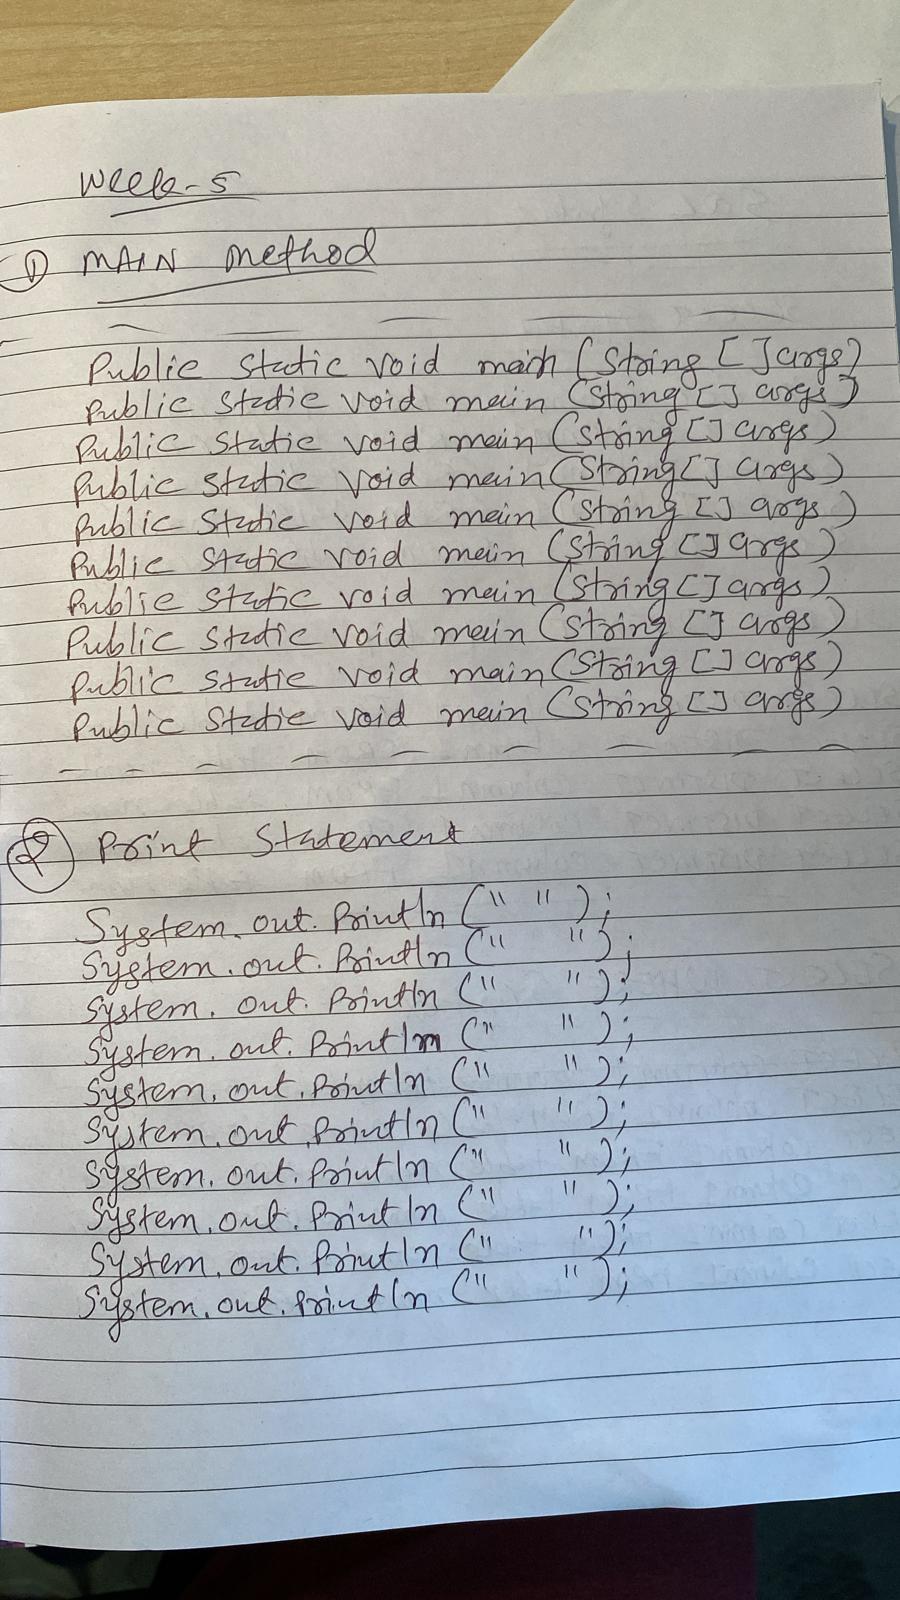 Week-5
① MAIN method
Public Static Void main (String [] args)
Public Static Void main (String [] args)
Public Static Void main (String [] args)
Public Static Void main (String [] args)
Public Static Void main (String [] args)
Public Static Void main (String [] args)
Public Static Void main (String [] args)
Public Static Void main (String [] args)
Public Static Void main (String [] args)
Public Static Void main (String [] args)
② Print Statement
System.out.Println (" ");
System.out.Println (" ");
System.out.Println (" ");
System.out.Println (" ");
System.out.Println (" ");
System.out.Println (" ");
System.out.Println (" ");
System.out.Println (" ");
System.out.Println (" ");
System.out.println (" ");